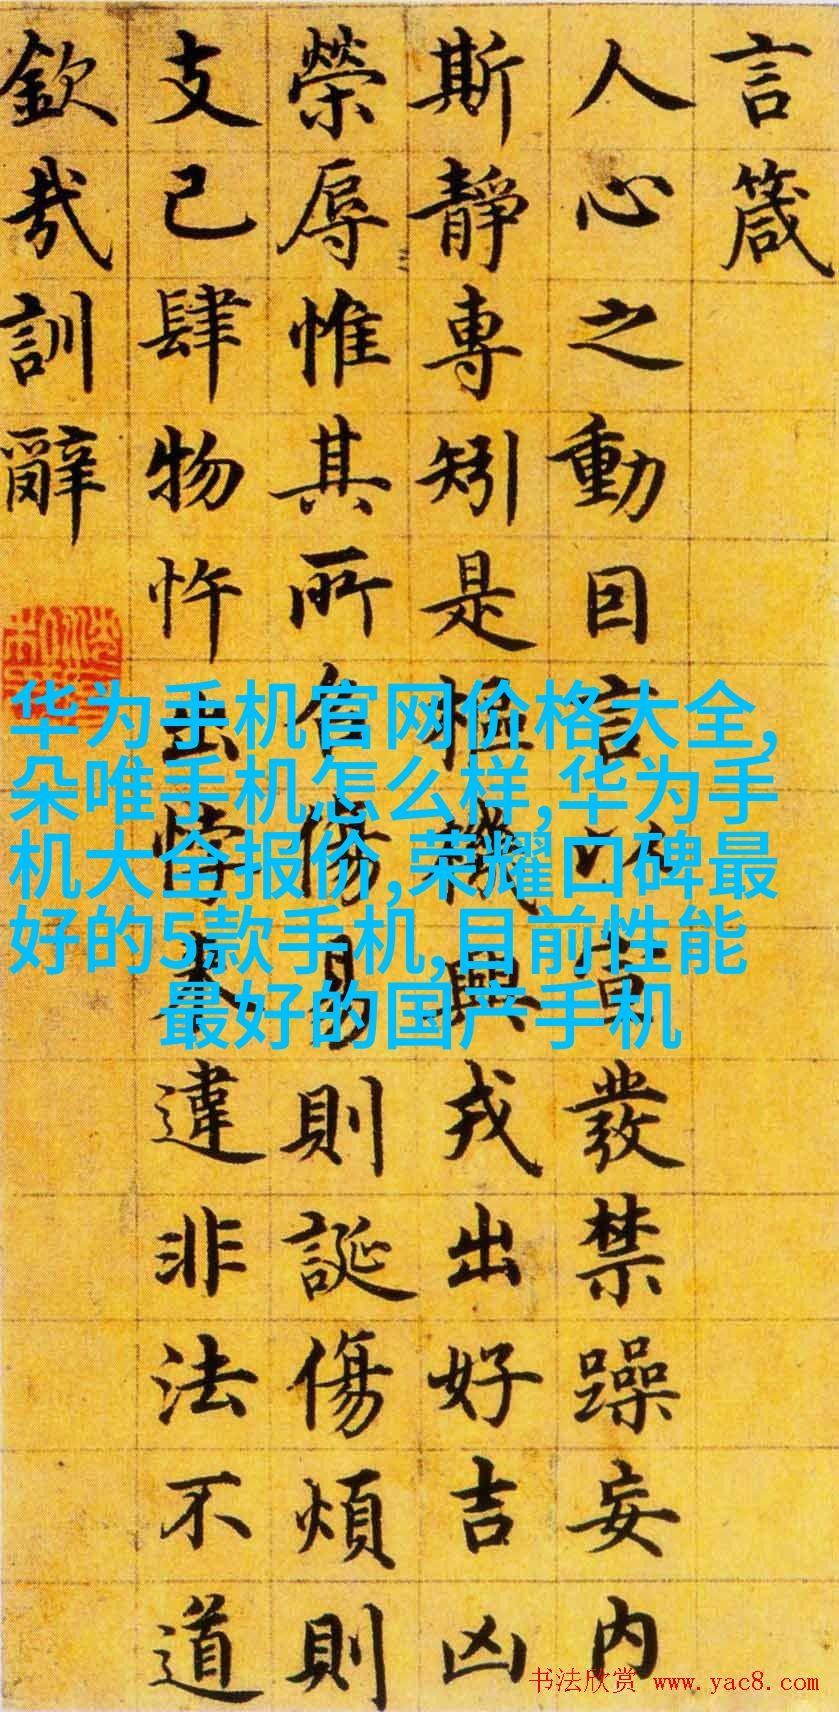 言箴
人心之動因言以宣發禁躁妄內
斯靜專矧是樞機興戎出好吉凶
榮辱惟其所召傷易則誕傷煩則
支己肆物忤出悖來違非法不道
欽哉訓辭
华为手机官网价格大全,
朵唯手机怎么样,华为手
机大全报价,荣耀口碑最
好的5款手机,目前性能
最好的国产手机
书法欣赏 www.yac8.com